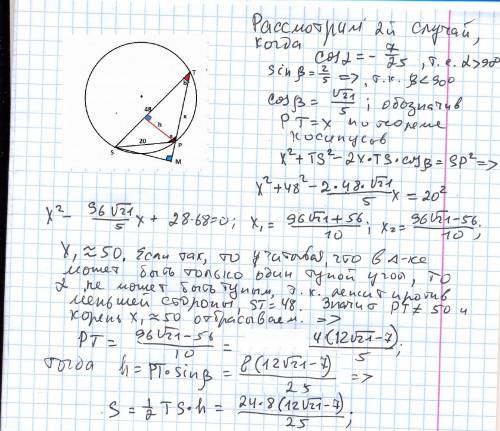 Рассмотрим 2й случай,
когда
cos α = - 7/25, т.е. α>90°
sin β = 2/5 =>, т.к. β<90°
cos β = √21/5; обозначив
PT = x по теореме
косинусов
x² + TS² - 2x·TS·cos β = SP² =>
x² + 48² - 2·48·√21/5 x = 20²
x² - 96√21/5 x + 28·68 = 0; x₁ = 96√21+56/10; x₂ = 96√21-56/10;
x₁ ≈ 50. Если так, то учитывая, что в Δ-ке
может быть только один тупой угол, то
α не может быть тупым, т.к. лежит против
меньшей стороны, ST = 48. Значит PT ≠ 50 и
корень x₁ ≈ 50 отбрасываем. =>
PT = 96√21-56/10 = 4(12√21-7)/5;
тогда h = PT·sin β = 8(12√21-7)/25 =>
S = 1/2 TS·h = 24·8(12√21-7)/25;
T
b
48
x
h
a
20
P
S
M